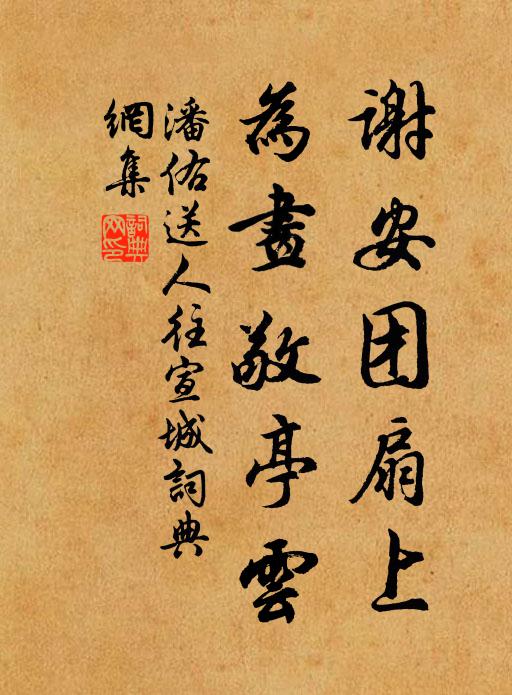 谢安团扇上
為畫敬亭雲
潘佑送人往宣城詞典
網集
詞典網印